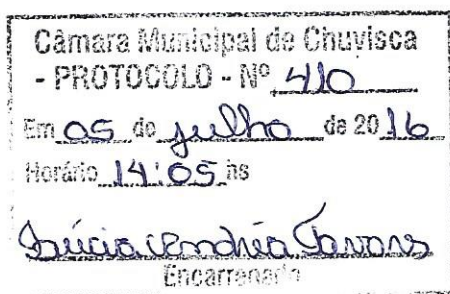 Câmara Municipal de Chuvisca
- PROTOCOLO - Nº 410
Em 05 de julho de 2016
Horário 14:05 hs
Tavares
Encarregado